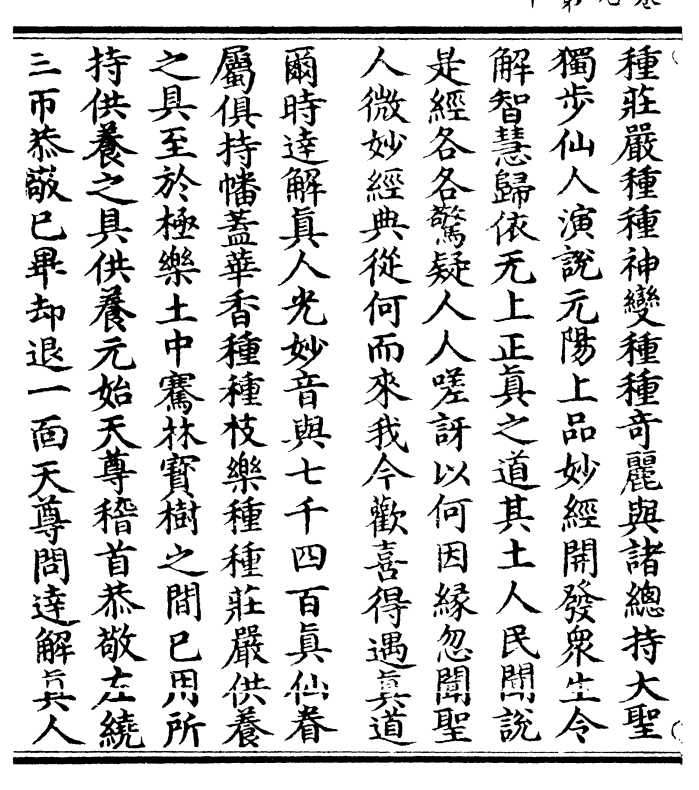 種莊嚴種種神變種種竒麗與諸總持大聖
獨步仙人演說元陽上品妙經開發衆生令
解智慧歸依无上正真之道其土人民聞說
是經各各驚疑人人嗟訝以何因緣忽聞聖
人微妙經典從何而來我今歡喜得遇真道
爾時達解真人光妙音與七千四百真仙眷
屬俱持幡蓋華香種種枝樂種種莊嚴供養
之具至於極樂土中騫林寶樹之間已用所
持供養之具供養元始天尊稽首恭敬左繞
三帀恭敬已畢却退一面天尊問達解真人